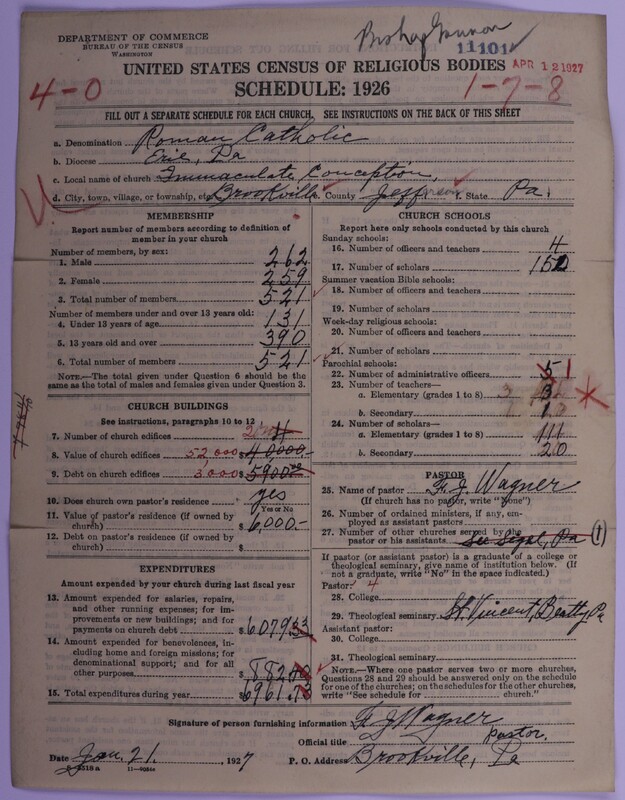 DEPARTMENT OF COMMERCE
BUREAU OF THE CENSUS
WASHINGTON
Bishop Gannon
11101
APR 12 1927
UNITED STATES CENSUS OF RELIGIOUS BODIES
4-0
SCHEDULE: 1926
1-7-8
FILL OUT A SEPARATE SCHEDULE FOR EACH CHURCH. SEE INSTRUCTIONS ON THE BACK OF THIS SHEET
a. Denomination Roman Catholic
b. Diocese Erie, Pa
c. Local name of church Immaculate Conception,
d. City, town, village, or township, etc. Brookville e. County Jefferson f. State Pa.
MEMBERSHIP
Report number of members according to definition of member in your church
Number of members, by sex:
1. Male 262
2. Female 259
3. Total number of members 521
Number of members under and over 13 years old:
4. Under 13 years of age 131
5. 13 years old and over 390
6. Total number of members 521
NOTE.—The total given under Question 6 should be
the same as the total of males and females given under Question 3.
CHURCH BUILDINGS
See instructions, paragraphs 10 to 12
7. Number of church edifices
8. Value of church edifices 52,000 $40,000.-
9. Debt on church edifices 3,000 $5900.00
10. Does church own pastor's residence yes
Yes or No
11. Value of pastor's residence (if owned by
church) $6,000.-
12. Debt on pastor's residence (if owned by
church) $
EXPENDITURES
Amount expended by your church during last fiscal year
13. Amount expended for salaries, repairs,
and other running expenses; for im-
provements or new buildings; and for
payments on church debt $6079.33
14. Amount expended for benevolences,
including home and foreign missions; for
denominational support; and for all
other purposes
15. Total expenditures during year $6961.73
CHURCH SCHOOLS
Report here only schools conducted by this church
Sunday schools:
16. Number of officers and teachers 4
17. Number of scholars
Summer vacation Bible schools:
18. Number of officers and teachers
19. Number of scholars
Week-day religious schools:
20. Number of officers and teachers
21. Number of scholars
Parochial schools:
22. Number of administrative officers
23. Number of teachers—
a. Elementary (grades 1 to 8)
b. Secondary
24. Number of scholars—
a. Elementary (grades 1 to 8) 111
b. Secondary 20
PASTOR
25. Name of pastor F. J. Wagner
(If church has no pastor, write "None")
26. Number of ordained ministers, if any, em-
ployed as assistant pastors
27. Number of other churches served by the
pastor or his assistants See Sigel, Pa (1)
If pastor (or assistant pastor) is a graduate of a college or
theological seminary, give name of institution below. (If
not a graduate, write "No" in the space indicated.)
Pastor:
28. College
29. Theological seminary St. Vincent, Beatty, Pa
Assistant pastor:
30. College
31. Theological seminary
NOTE.—Where one pastor serves two or more churches,
Questions 28 and 29 should be answered only on the schedule
for one of the churches; on the schedules for the other churches,
write "See schedule for church."
Signature of person furnishing information F. J. Wagner
Official title pastor.
Date Jan. 21, 1927 P. O. Address Brookville, Pa